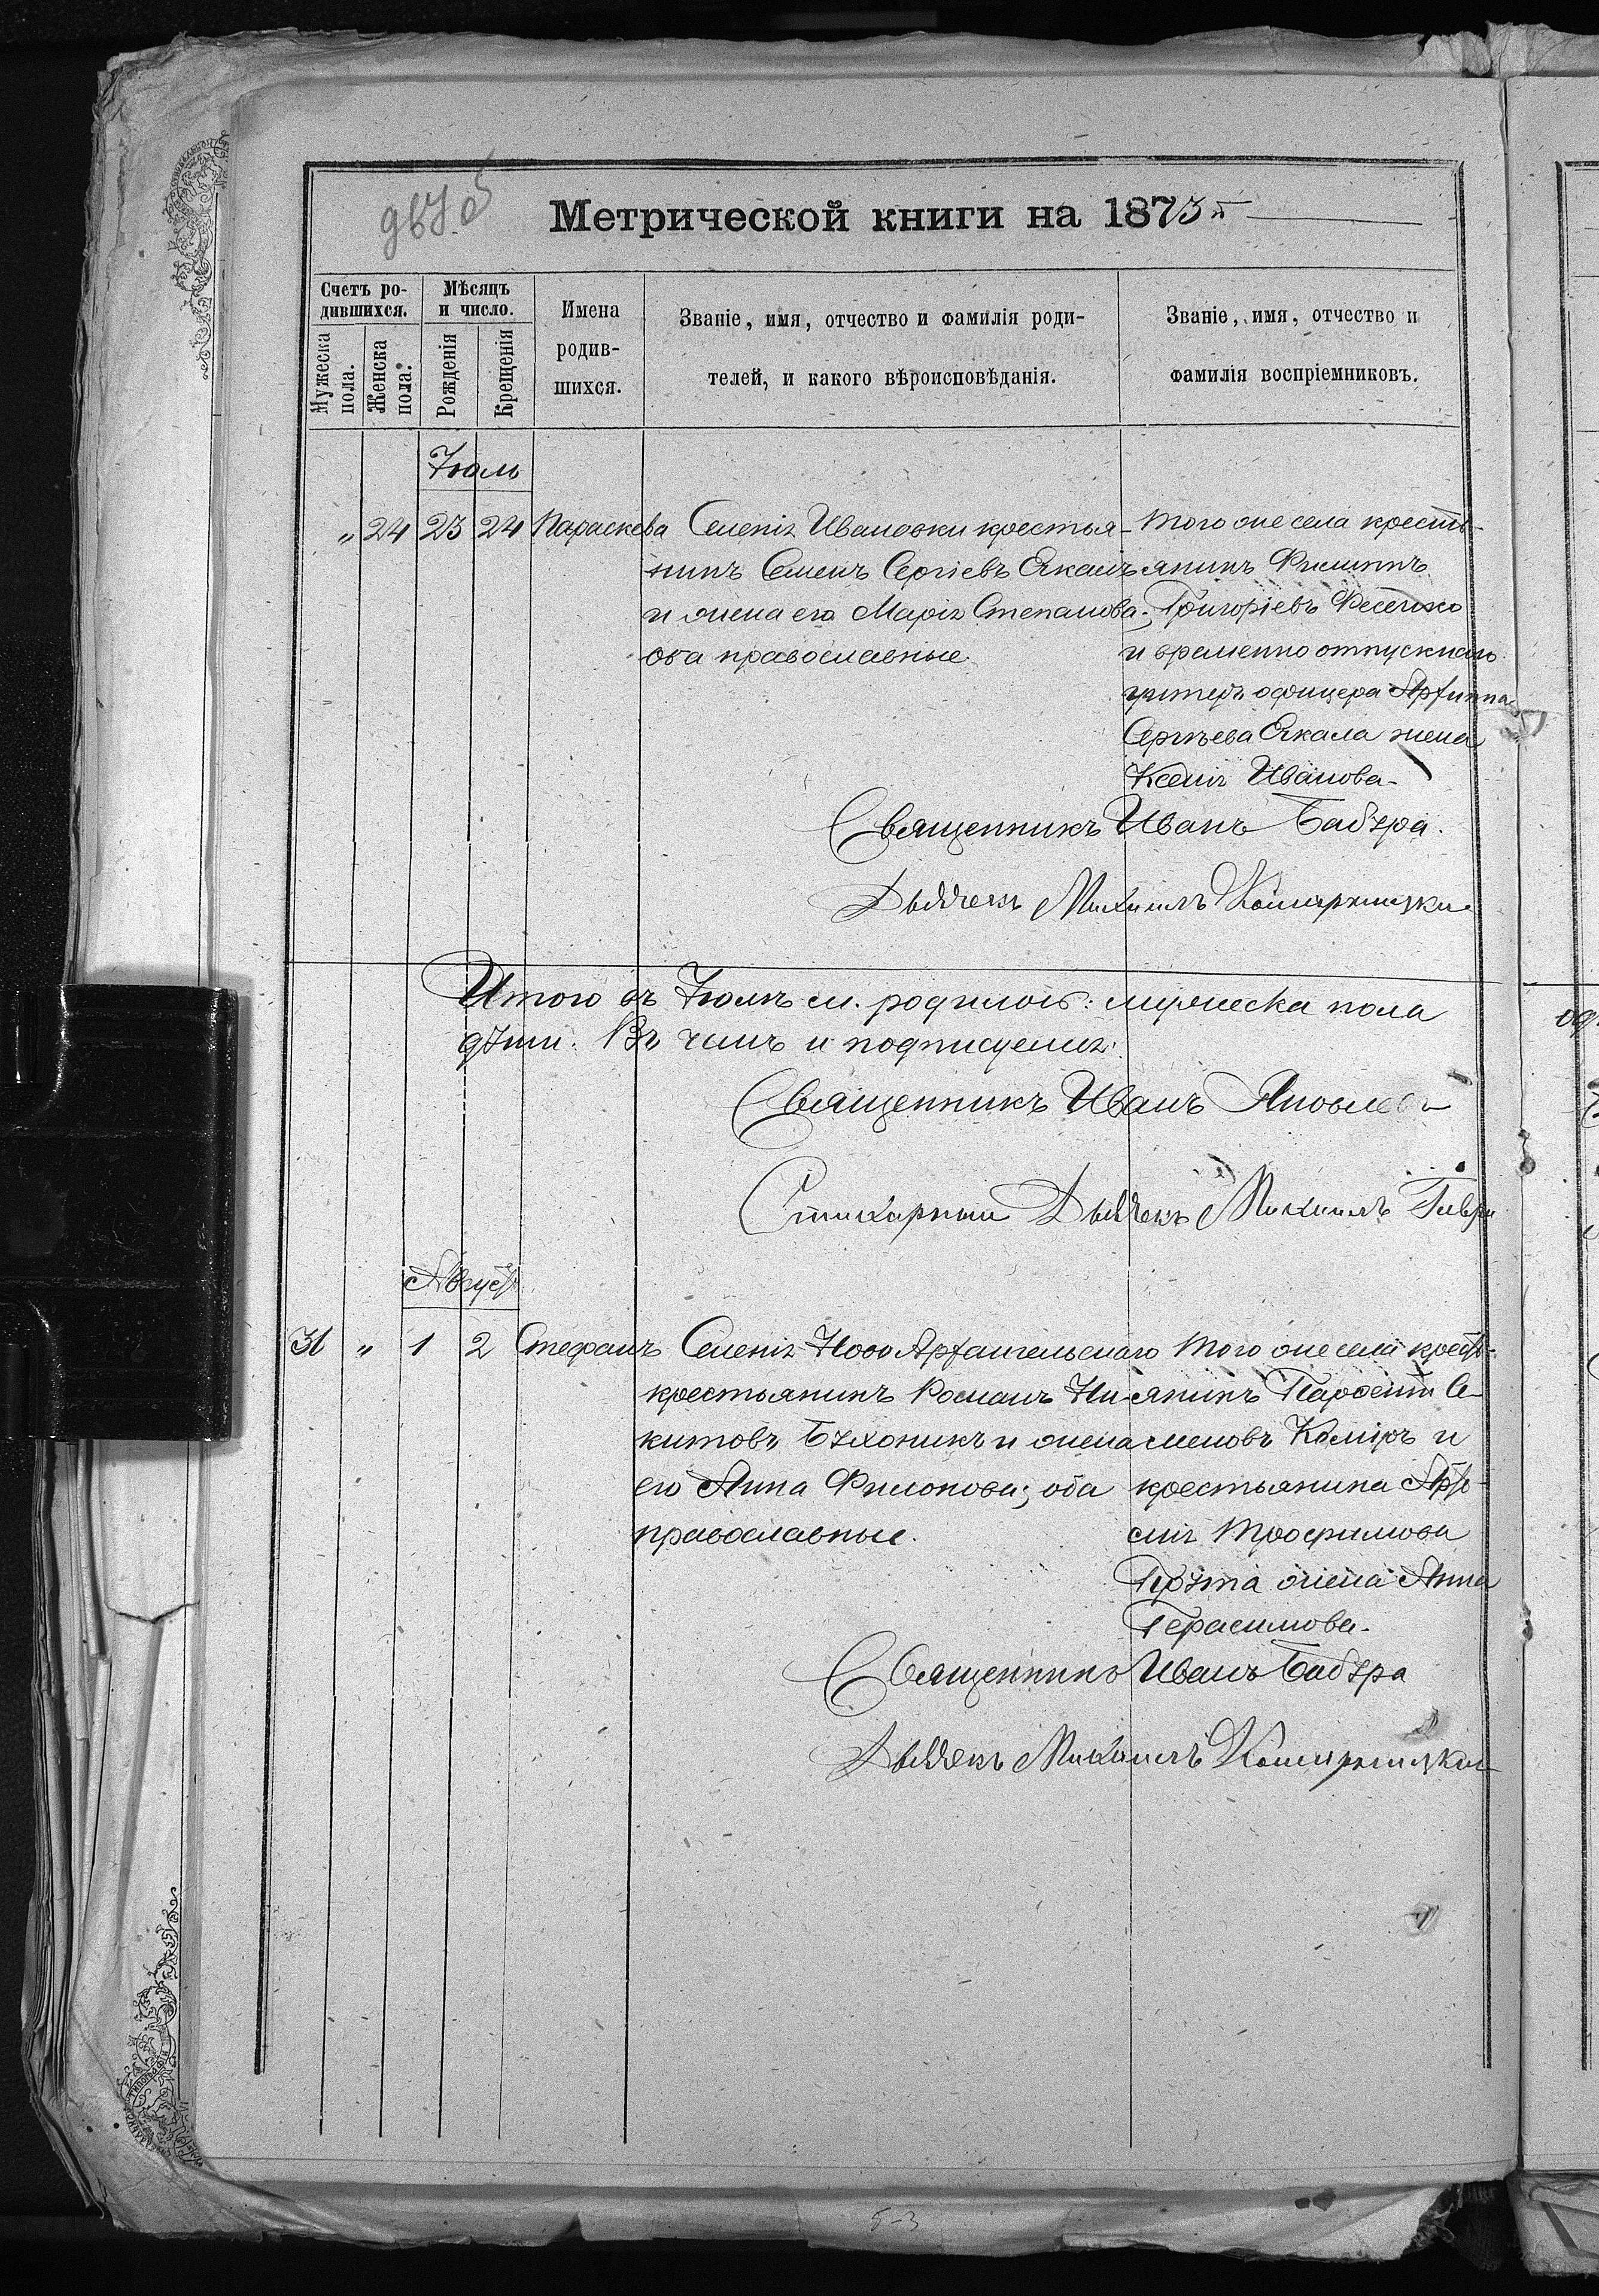 Метрической книги на 1875 г
Счетъ ро-
дившихся.
Мужеска пола.
Женска пола.
Мѣсяцъ
и число.
Рожденія
Крещенія
Имена
родив-
шихся.
Званіе, имя, отчество и фамилія роди-
телей, и какого вѣроисповѣданія.
Званіе, имя, отчество и
фамилія воспріемниковъ.
Іюль
" 24 23 24 Параскева
Селенія Ивановки крестья-
нинъ Семенъ Сергіевъ Скалъ
и жена его Марія Степанова;
оба православные.
Того же села крестъ-
янинъ Филиппъ
Григоріевъ Фесенко
и временно отпускнаго
унтеръ офицера
Сергѣева Скала жена
Ксенія Иванова
Священникъ Иванъ Бабура.
Дьячекъ Михаилъ
Итого въ Іюлѣ м. родилось: мужеска пола
Въ чемъ и подписуемся:
Священникъ Иванъ
Стихарный Дьячекъ Михаилъ
Август
31 " 1 2 Стефанъ
Селенія Ново Архангельскаго
крестьянинъ Романъ Ни-
китовъ и жена
его Анна Филонова; оба
православные.
Того же села крестъ-
янинъ Парфентій Се-
меновъ Комиръ и
крестьянина
Трофимова
жена Анна
Герасимова.
Священникъ Иванъ Бабура
Дьячекъ Михаилъ
5-3